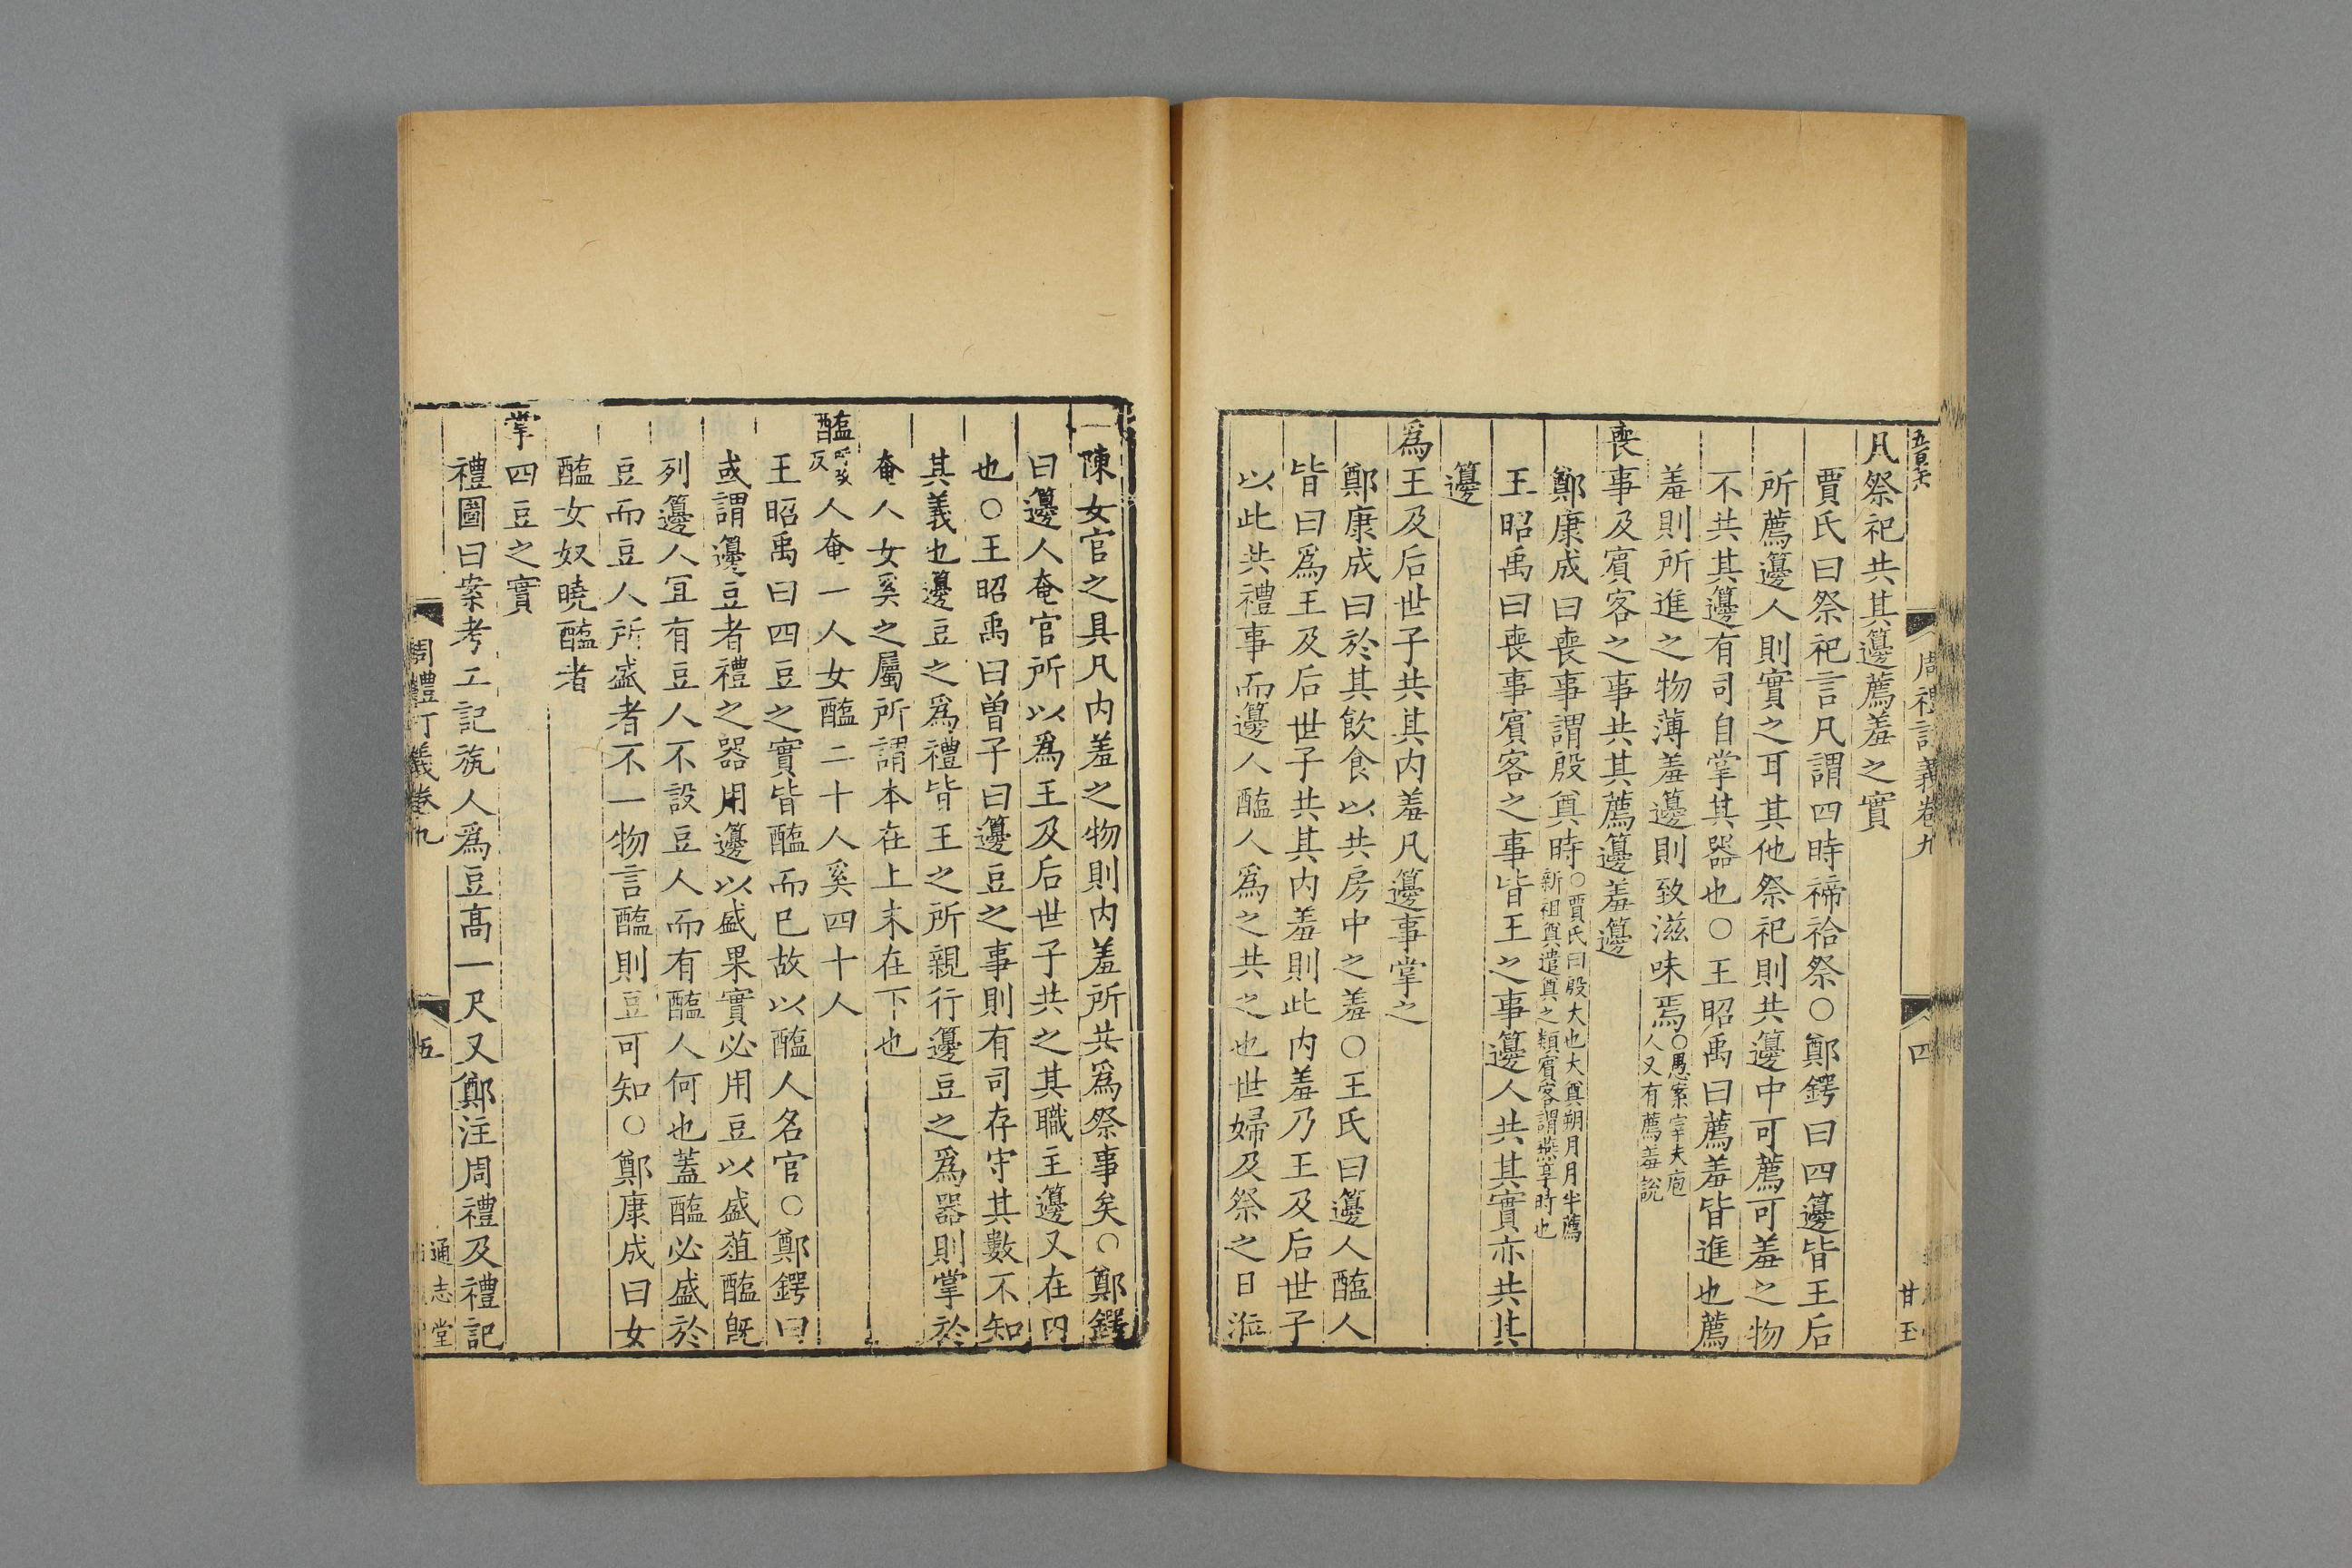 周禮訂義卷九
四
甘玉
凡祭祀共其籩薦羞之實
賈氏曰祭祀言凡謂四時禘祫祭○鄭鍔曰四籩皆王后
所薦籩人則實之耳其他祭祀則共籩中可薦可羞之物
不共其籩有司自掌其器也○王昭禹曰薦羞皆進也薦
羞則所進之物薄羞籩則致滋味焉○愚案宰夫庖人又有薦羞說
喪事及賓客之事共其薦籩羞籩
鄭康成曰喪事謂殷奠時○賈氏曰殷大也大奠朔月月半薦新祖奠遣奠之類賓客謂燕享時也
王昭禹曰喪事賓客之事皆王之事籩人共其實亦共其
籩
爲王及后世子共其內羞凡籩事掌之
鄭康成曰於其飲食以共房中之羞○王氏曰籩人醢人
皆曰爲王及后世子共其內羞則此內羞乃王及后世子
以此共禮事而籩人醢人爲之共之也世婦及祭之日涖
陳女官之具凡內羞之物則內羞所共爲祭事矣○鄭鍔
曰籩人奄官所以爲王及后世子共之其職主籩又在內
也○王昭禹曰曾子曰籩豆之事則有司存守其數不知
其義也籩豆之爲禮皆王之所親行籩豆之爲器則掌於
奄人女奚之屬所謂本在上末在下也
醢反人奄一人女醢二十人奚四十人
王昭禹曰四豆之實皆醢而已故以醢人名官○鄭鍔曰
或謂籩豆者禮之器用籩以盛果實必用豆以盛菹醢旣
列籩人宜有豆人不設豆人而有醢人何也蓋醢必盛於
豆而豆人所盛者不一物言醢則豆可知○鄭康成曰女
醢女奴曉醢者
掌四豆之實
禮圖曰案考工記瓬人爲豆高一尺又鄭注周禮及禮記
周禮訂義卷九
五
通志堂